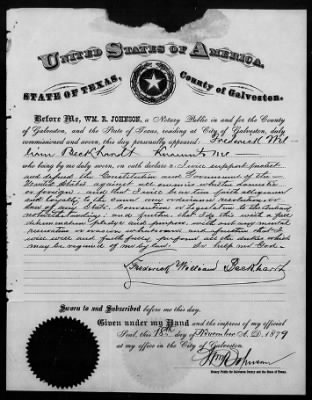 UNITED STATES OF AMERICA.
STATE OF TEXAS,
County of Galveston.
Before Me, WM. R. JOHNSON, a Notary Public in and for the County
of Galveston, and the State of Texas, residing at City of Galveston, duly
commissioned and sworn, this day personally appeared Frederick Wil
liam Beckhardt
who being by me duly sworn, on oath declare I will support protect
and defend the Constitution and Government of the
United States against all enemies whether domestic
or foreign and that I will bear true faith allegiance
and loyalty to the same any ordinance resolution or
law of any State Convention or Legislature to the contrary
notwithstanding and further that I do this with a full
determination pledge and purpose without any mental
reservation or evasion whatsoever and further that I
will well and faithfully perform all the duties which
may be required of me by law. So help me God
Frederick William Beckhardt
Sworn to and Subscribed before me this day.
Given under my Hand and the impress of my official
Seal, this 18th day of November A. D. 1879
at my office in the City of Galveston.
Wm R Johnson
Notary Public for Galveston County and the State of Texas.